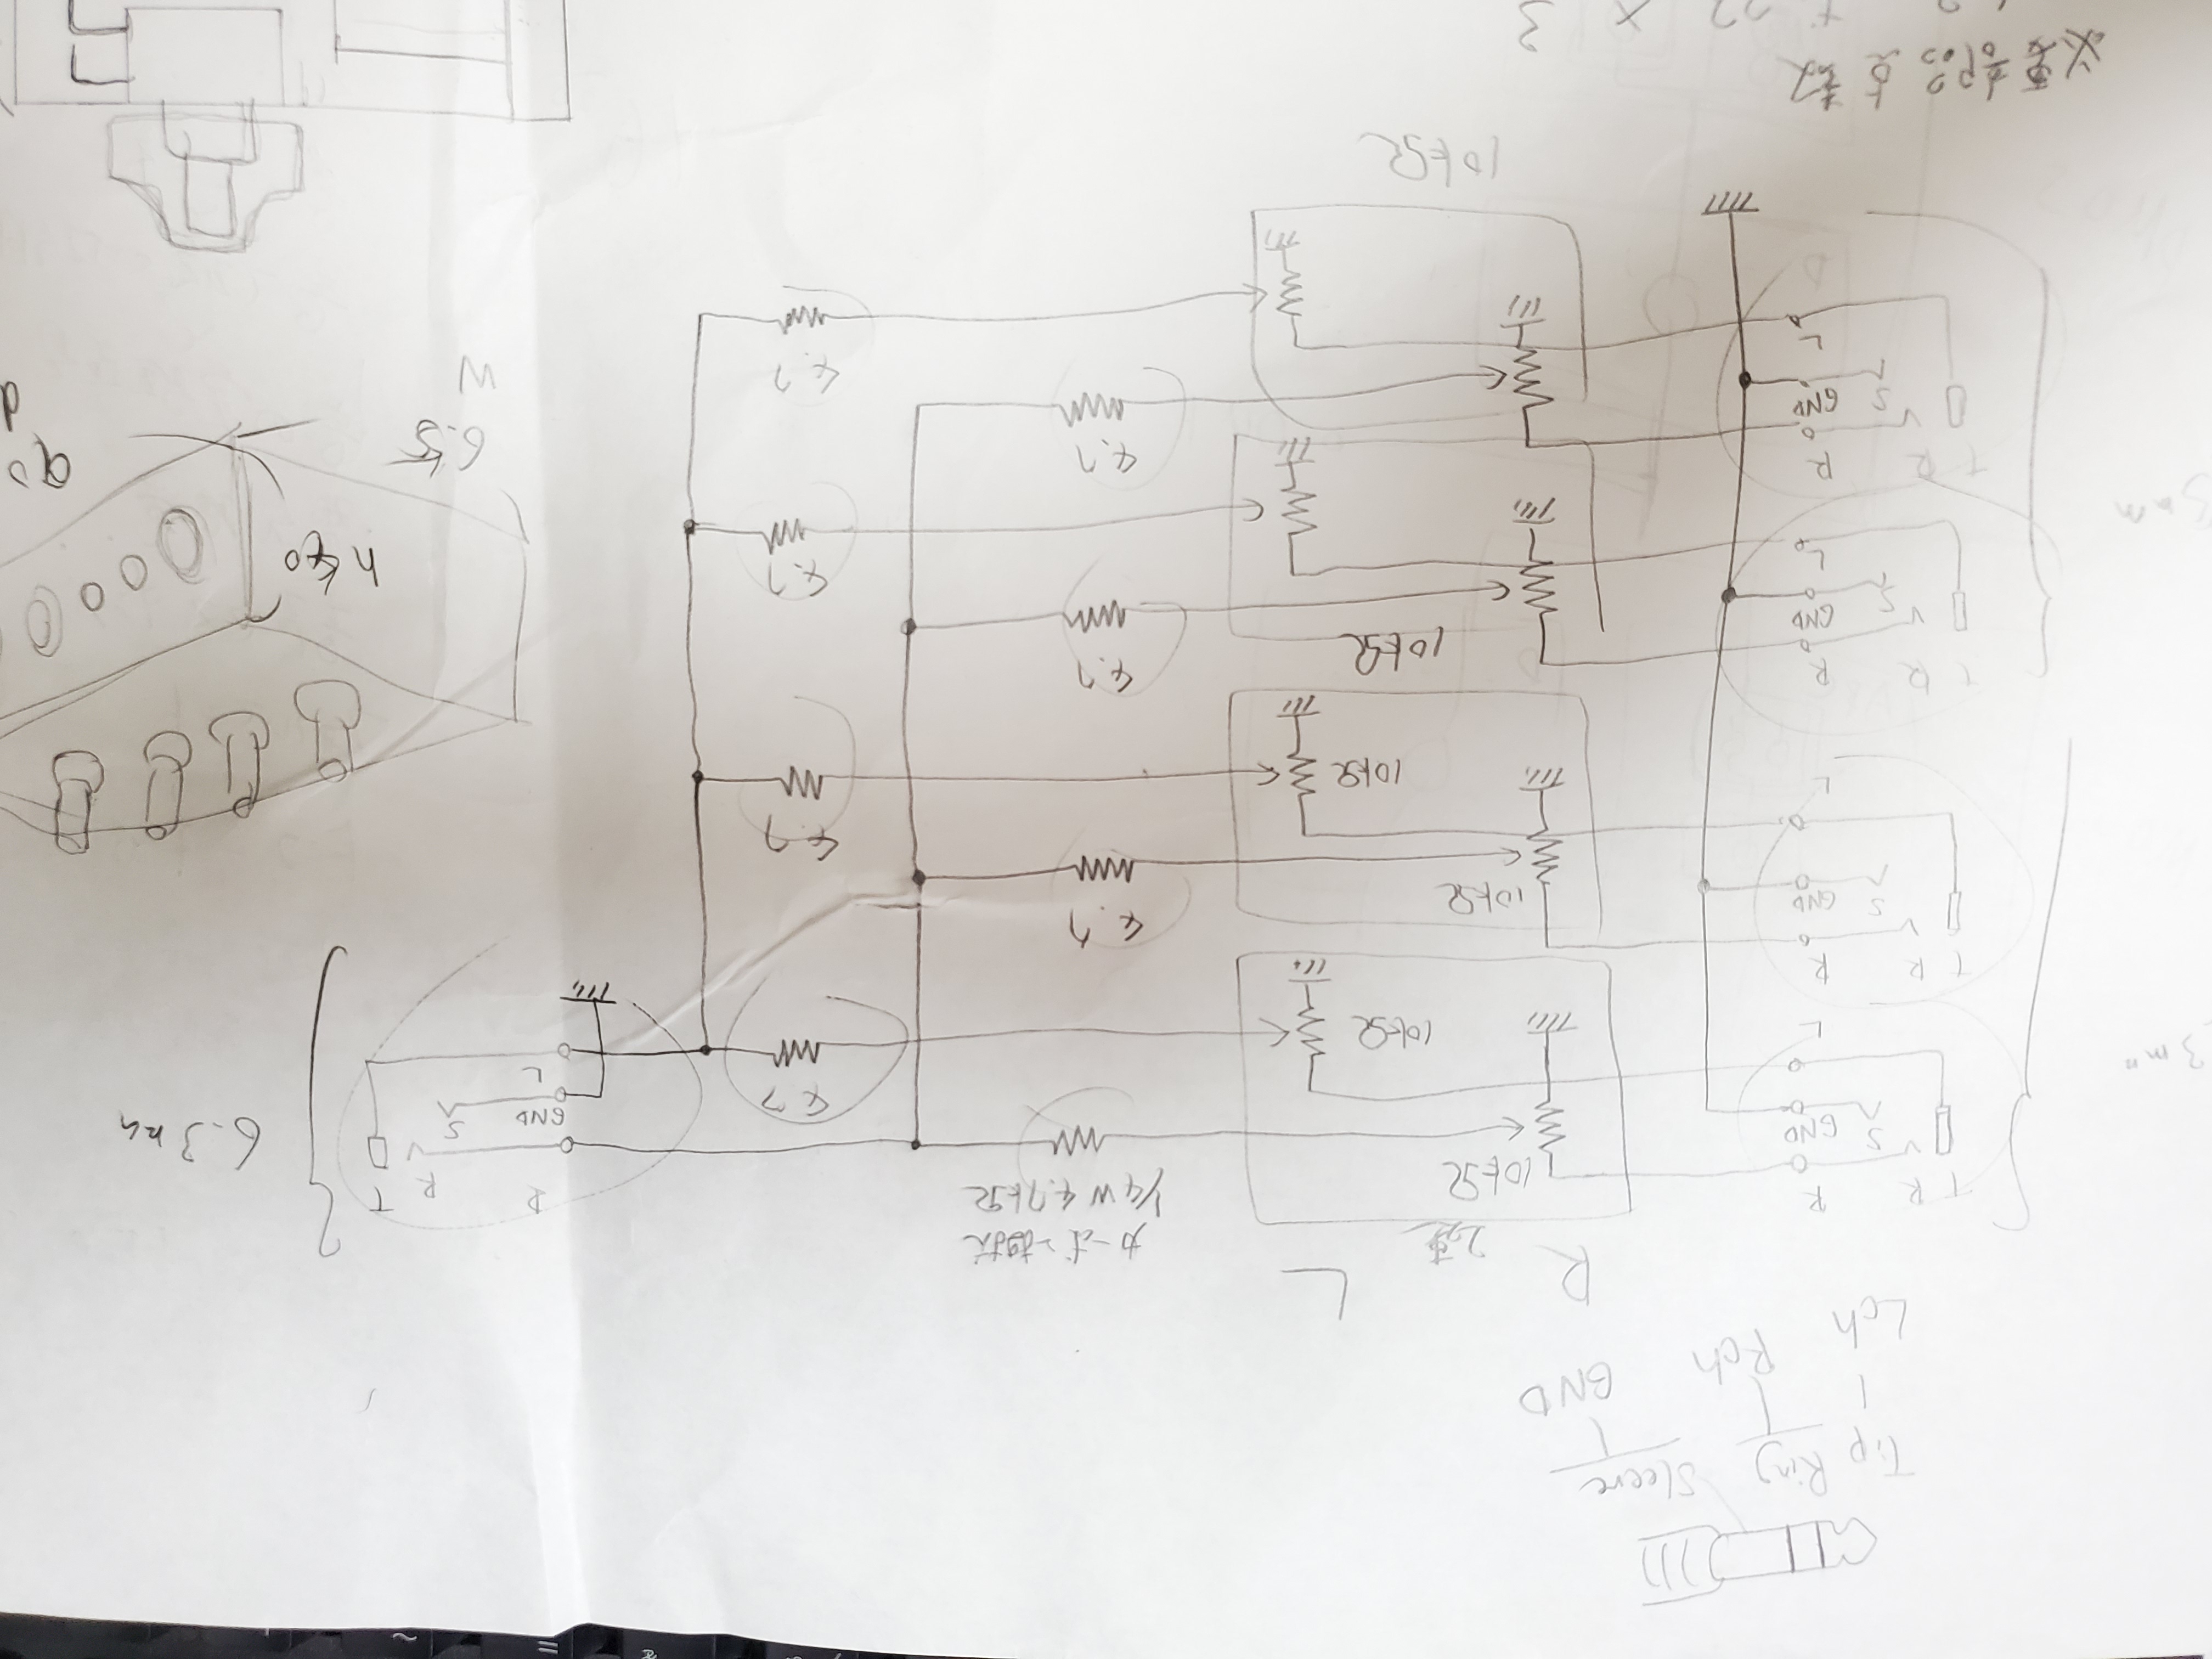 Tip Ring Sleeve
Lch Rch GND
R L
2連
カーボン抵抗
1/4W 4.7kΩ
T R R
S GND
L
10kΩ
10kΩ
4.7
R R T
GND S
L
6.3mm
3mm
T R R
S GND
L
10kΩ
10kΩ
4.7
4.7
T R R
S GND
L
10kΩ
4.7
4.7
5mm
T R R
S GND
L
4.7
4.7
10kΩ
h40
6.5
W
90
d
必要部品点数
× 3